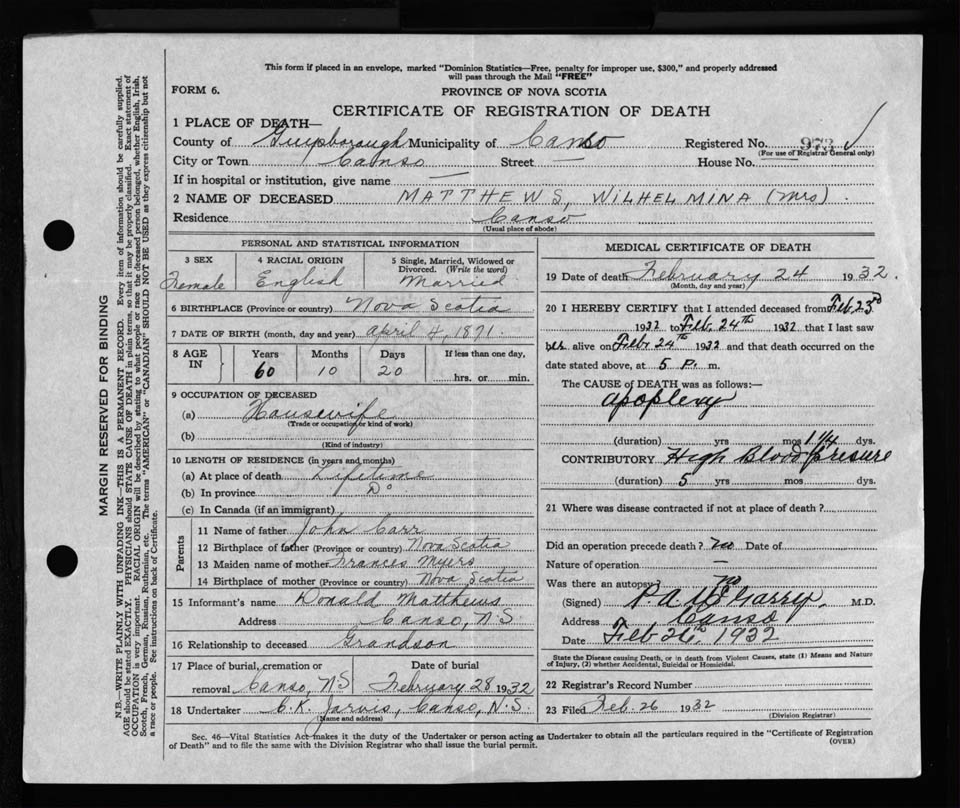 This form if placed in an envelope, marked "Dominion Statistics—Free, penalty for improper use, $300," and properly addressed
will pass through the Mail "FREE"
FORM 6.
PROVINCE OF NOVA SCOTIA
CERTIFICATE OF REGISTRATION OF DEATH
1 PLACE OF DEATH—
County of Guysborough Municipality of Canso Registered No. 973
(For use of Registrar General only)
City or Town Canso Street — House No. —
If in hospital or institution, give name —
2 NAME OF DECEASED MATTHEWS, WILHELMINA (Mrs)
Residence Canso
(Usual place of abode)
PERSONAL AND STATISTICAL INFORMATION
3 SEX
Female
4 RACIAL ORIGIN
English
5 Single, Married, Widowed or
Divorced. (Write the word)
Married
6 BIRTHPLACE (Province or country) Nova Scotia
7 DATE OF BIRTH (month, day and year) April 4, 1871.
8 AGE
IN
Years
60
Months
10
Days
20
If less than one day,
hrs. or min.
9 OCCUPATION OF DECEASED
(a) Housewife
(Trade or occupation or kind of work)
(b)
(Kind of industry)
10 LENGTH OF RESIDENCE (in years and months)
(a) At place of death Lifetime
(b) In province Do
(c) In Canada (if an immigrant)
Parents
11 Name of father John Carr
12 Birthplace of father (Province or country) Nova Scotia
13 Maiden name of mother Frances Myers
14 Birthplace of mother (Province or country) Nova Scotia
15 Informant's name Donald Matthews
Address Canso, N.S.
16 Relationship to deceased Grandson
17 Place of burial, cremation or
removal Canso, N.S
Date of burial
February 28 1932
18 Undertaker C.K. Jarvis, Canso, N.S.
(Name and address)
MEDICAL CERTIFICATE OF DEATH
19 Date of death February 24 1932.
(Month, day and year)
20 I HEREBY CERTIFY that I attended deceased from Feb. 23rd
1932 to Feb. 24th 1932 that I last saw
her alive on Feb. 24th 1932 and that death occurred on the
date stated above, at 5 P. m.
The CAUSE of DEATH was as follows:—
apoplexy
(duration) yrs mos 1 1/4 dys.
CONTRIBUTORY High Blood presure
(duration) 5 yrs mos dys.
21 Where was disease contracted if not at place of death?
Did an operation precede death? no Date of
Nature of operation —
Was there an autopsy? no
(Signed) M.D.
Address Canso
Date Feb 26th 1932
State the Disease causing Death, or in death from Violent Causes, state (1) Means and Nature
of Injury, (2) whether Accidental, Suicidal or Homicidal.
22 Registrar's Record Number
23 Filed Feb. 26 1932
(Division Registrar)
Sec. 46—Vital Statistics Act makes it the duty of the Undertaker or person acting as Undertaker to obtain all the particulars required in the "Certificate of Registration
of Death" and to file the same with the Division Registrar who shall issue the burial permit.
(OVER)
MARGIN RESERVED FOR BINDING
N.B.—WRITE PLAINLY WITH UNFADING INK—THIS IS A PERMANENT RECORD. Every item of information should be carefully supplied.
AGE should be stated EXACTLY. PHYSICIANS should STATE CAUSE OF DEATH in plain terms, so that it may be properly classified. Exact statement of
OCCUPATION is very important. RACIAL ORIGIN will be described by stating to what people or race the deceased person belonged, whether English, Irish,
Scotch, French, German, Russian, Ruthenian, etc. The terms "AMERICAN" or "CANADIAN" SHOULD NOT BE USED as they express citizenship but not
a race or people. See instructions on back of Certificate.